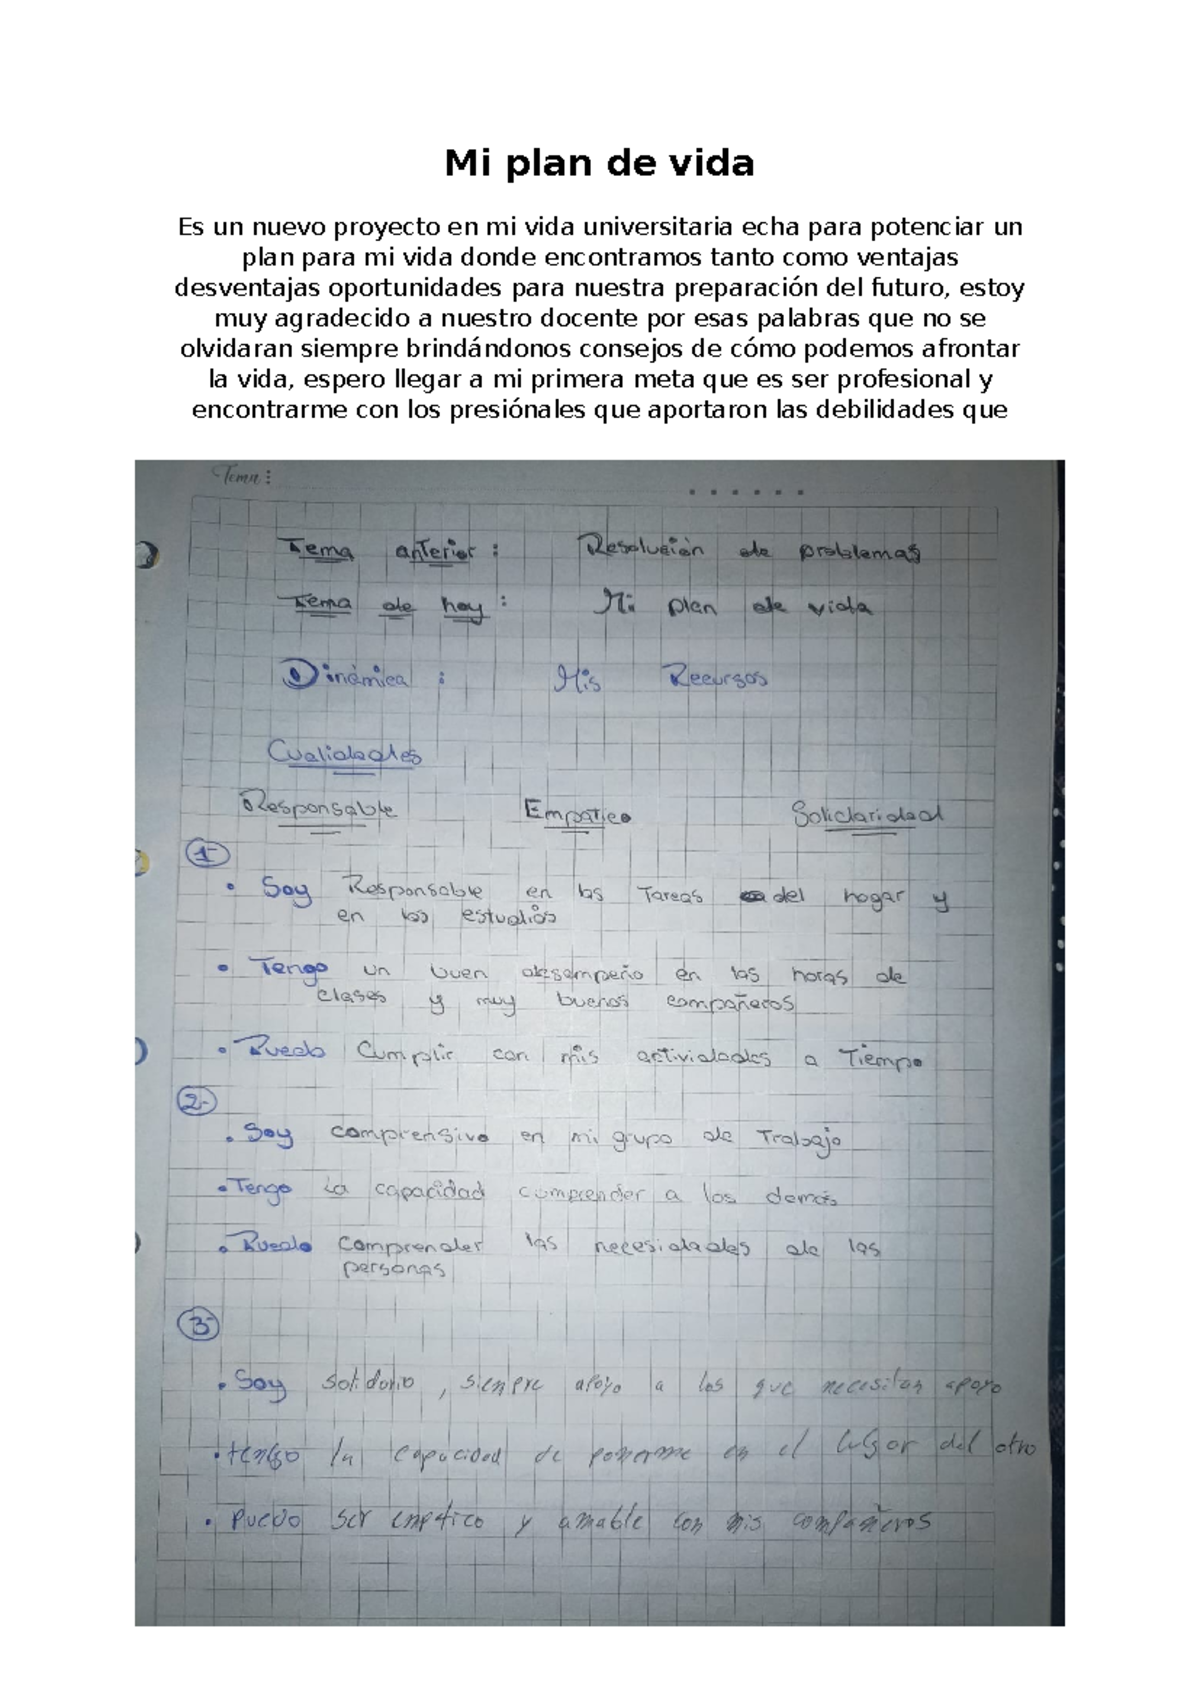 Mi plan de vida
Es un nuevo proyecto en mi vida universitaria echa para potenciar un
plan para mi vida donde encontramos tanto como ventajas
desventajas oportunidades para nuestra preparación del futuro, estoy
muy agradecido a nuestro docente por esas palabras que no se
olvidaran siempre brindándonos consejos de cómo podemos afrontar
la vida, espero llegar a mi primera meta que es ser profesional y
encontrarme con los presiónales que aportaron las debilidades que
Tema:
Tema anterior : Resolución de problemas
Tema de hoy : Mi plan de vida
Dinámica : Mis Recursos
Cualidades
Responsable Empatico Solidaridad
1-
• Soy Responsable en las Tareas del hogar y
en los estudios
• Tengo un buen desempeño en las horas de
clases y muy buenos compañeros
• Puedo Cumplir con mis actividades a Tiempo
2-
• Soy comprensivo en mi grupo de Trabajo
• Tengo La capacidad comprender a los demás
• Puedo comprender las necesidades de las
personas
3-
• Soy solidario, siempre apoyo a los que necesitan apoyo
• tengo la capacidad de ponerme en el lugar del otro
• puedo ser empatico y amable con mis compañeros